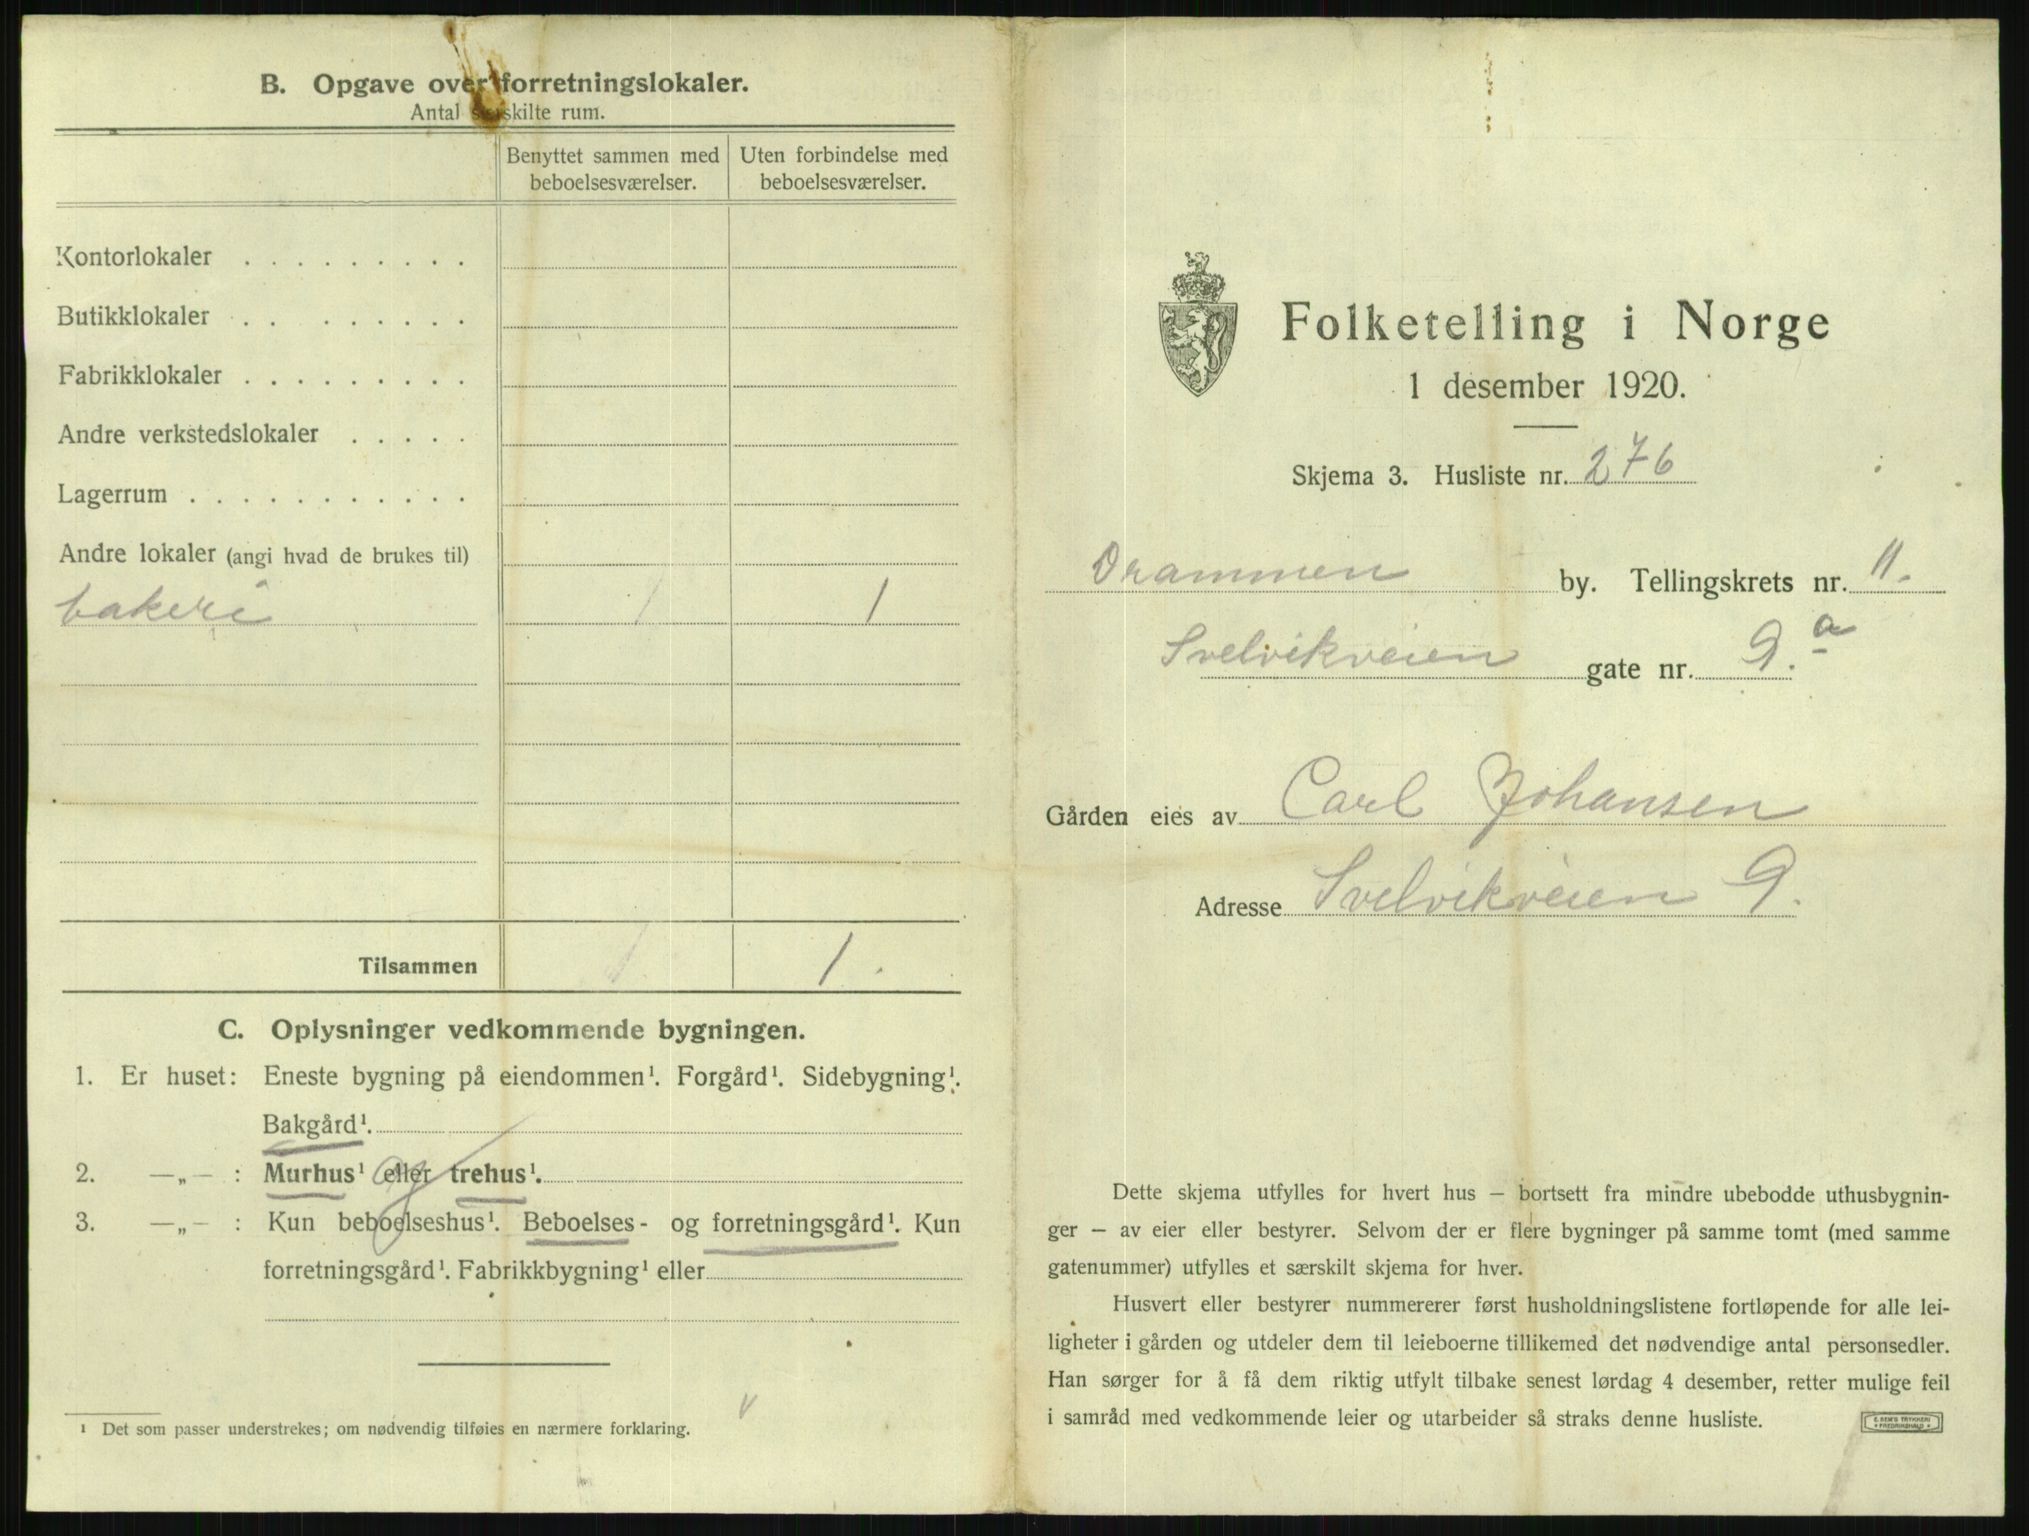 B. Opgave over forretningslokaler.
Antal særskilte rum.
Benyttet sammen med beboelsesværelser.
Uten forbindelse med beboelsesværelser.
Kontorlokaler . . . . . . . . .
Butikklokaler . . . . . . . . .
Fabrikklokaler . . . . . . . . .
Andre verkstedslokaler . . . . .
Lagerrum . . . . . . . . . . .
Andre lokaler (angi hvad de brukes til)
bakeri 1 1
Tilsammen 1 1.
C. Oplysninger vedkommende bygningen.
1. Er huset: Eneste bygning på eiendommen¹. Forgård¹. Sidebygning¹.
Bakgård¹.
2. —„— : Murhus¹ eller og trehus¹.
3. —„— : Kun beboelseshus¹. Beboelses- og forretningsgård¹. Kun
forretningsgård¹. Fabrikkbygning¹ eller
¹ Det som passer understrekes; om nødvendig tilføies en nærmere forklaring.
Folketelling i Norge
1 desember 1920.
Skjema 3. Husliste nr. 276
Drammen by. Tellingskrets nr. 11.
Svelvikveien gate nr. 9.a
Gården eies av Carl Johansen
Adresse Svelvikveien 9.
Dette skjema utfylles for hvert hus — bortsett fra mindre ubebodde uthusbygnin-
ger — av eier eller bestyrer. Selvom der er flere bygninger på samme tomt (med samme
gatenummer) utfylles et særskilt skjema for hver.
Husvert eller bestyrer nummererer først husholdningslistene fortløpende for alle lei-
ligheter i gården og utdeler dem til leieboerne tillikemed det nødvendige antal personsedler.
Han sørger for å få dem riktig utfylt tilbake senest lørdag 4 desember, retter mulige feil
i samråd med vedkommende leier og utarbeider så straks denne husliste.
E. SEM'S TRYKKERI
FREDRIKSHALD